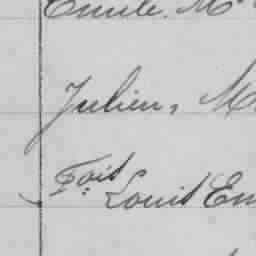 Emile. M
Julien, M
Fois Louis Em